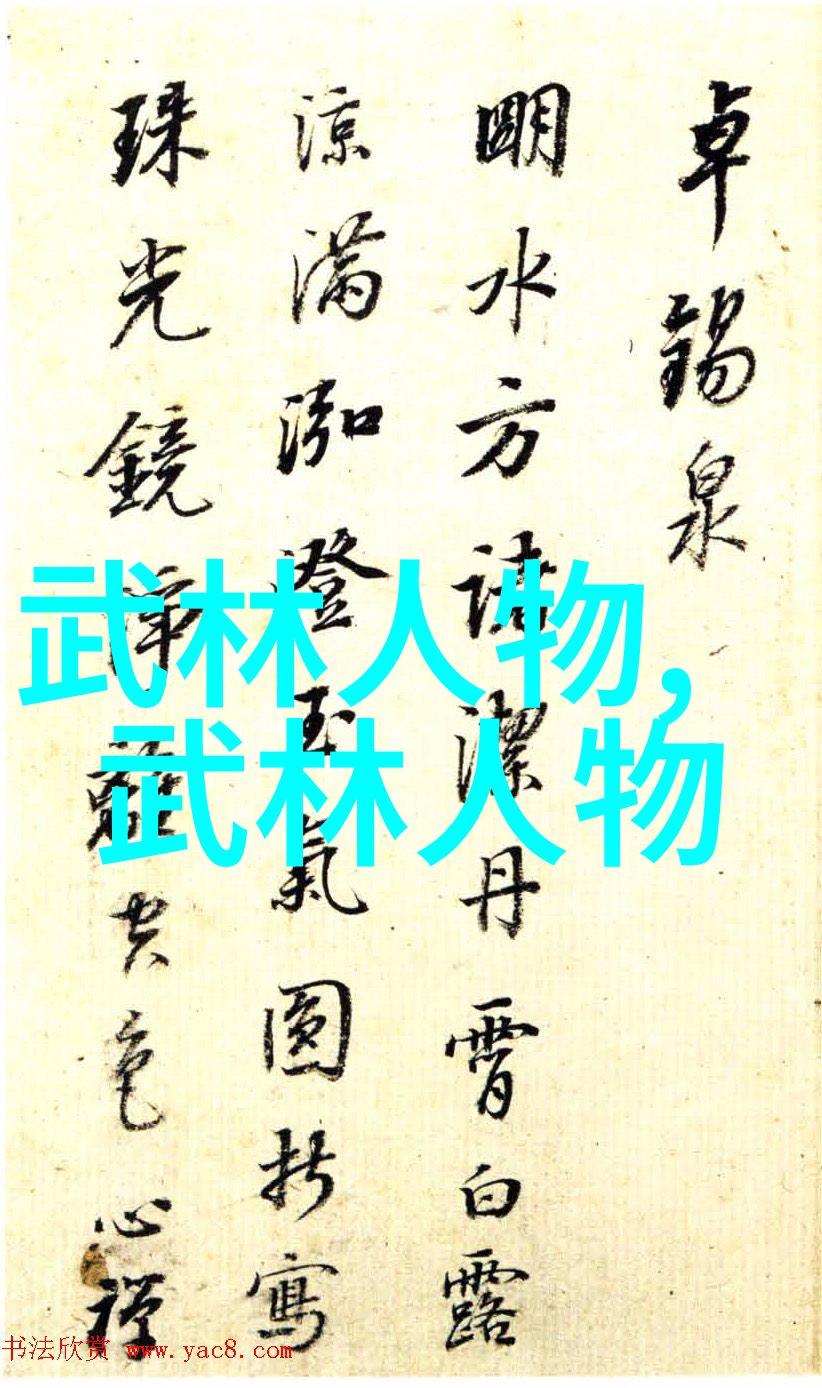 卓錫泉
朙水方諸潔丹霄白露
涼滿泓澄玉氣圓折寫
珠光鏡淨離空色心禪
武林人物，
武林人物
书法欣赏 www.yac8.com